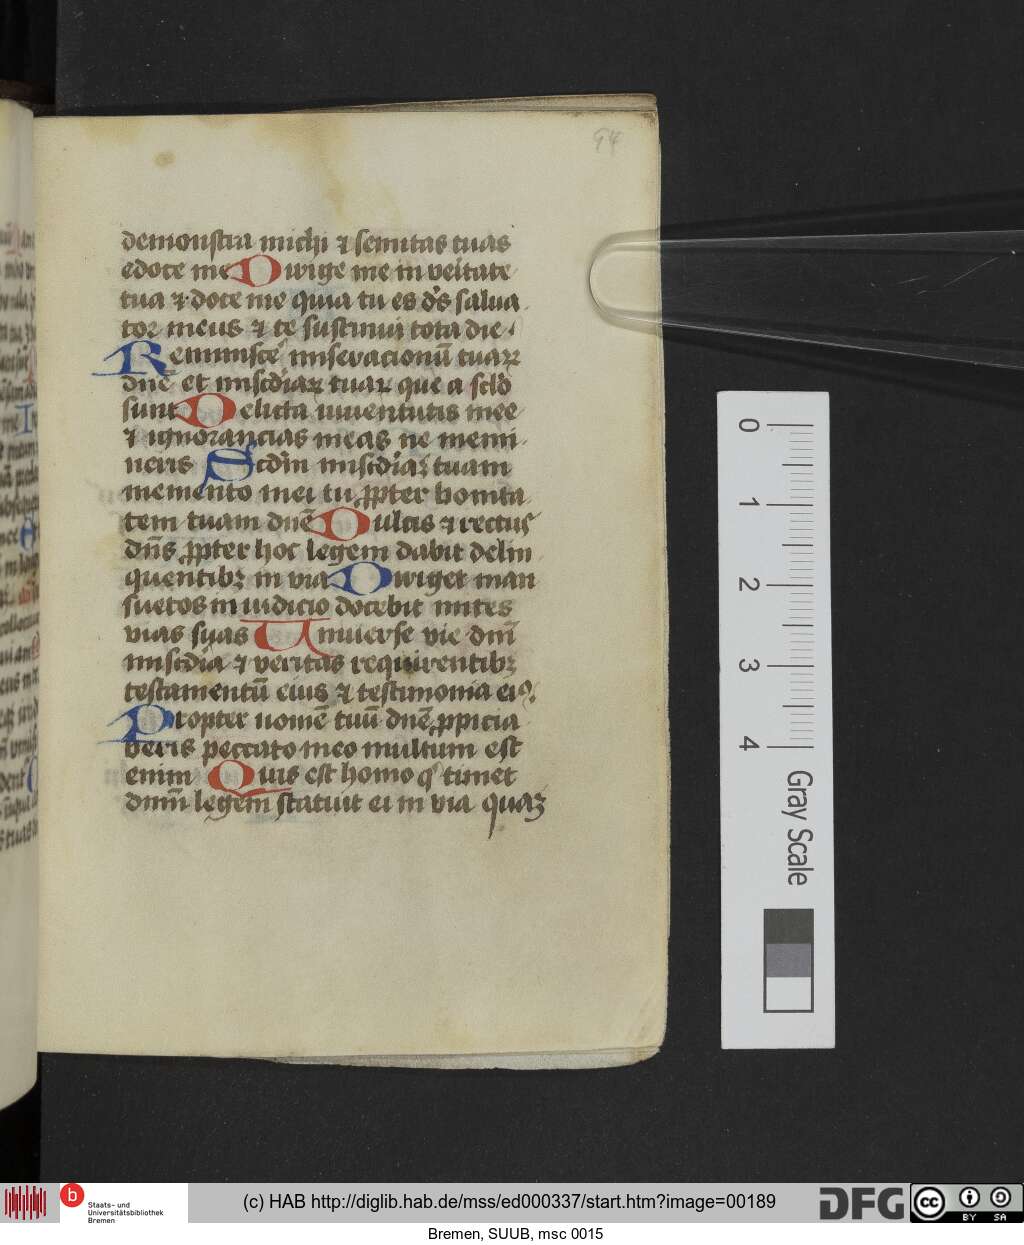 94
demonstra michi ⁊ semitas tuas
edoce me Dirige me in veritate
tua ⁊ doce me quia tu es ds̄ salua
tor meus ⁊ te sustinui tota die
Reminisce miseracionū tuaꝝ
dn̄e et mīsc̄diaꝝ tuaꝝ que a sc̄lo
sunt Delicta iuuentutis mee
⁊ ignorancias meas ne memi
neris Sc̄dm̄ mīsc̄diaꝝ tuam
memento mei tu ꝓpter bonita
tem tuam dn̄e Dulcis ⁊ rectus
dn̄s ꝓpter hoc legem dabit delin
quentibꝫ in via Diriget man
suetos in iudicio docebit mites
vias suas Uniuerse vie dn̄i
mīsc̄dia ⁊ veritas requirentibꝫ
testamentū eius ⁊ testimonia eiꝰ
Propter nomē tuū dn̄e ꝓpicia
beris peccato meo multum est
enim Quis est homo q̄ timet
dn̄m legem statuit ei in via quaꝫ
0
1
2
3
4
Gray Scale
b Staats- und
Universitätsbibliothek
Bremen
(c) HAB http://diglib.hab.de/mss/ed000337/start.htm?image=00189
DFG
cc BY SA
Bremen, SUUB, msc 0015